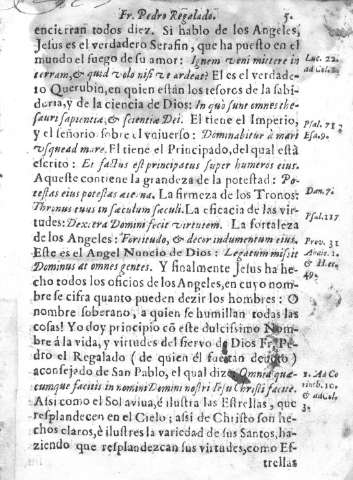 Fr. Pedro Regalado. 5.
encierran todos diez. Si hablo de los Angeles,
Jesus es el verdadero Serafin, que ha puesto en el
mundo el fuego de su amor: Ignem veni mittere in
terram, & quid volo nisi vt ardeat? El es el verdade-
ro Querubin, en quien están los tesoros de la sabi-
duria, y de la ciencia de Dios: In quo sunt omnes the-
sauri sapientiæ, & scientiæ Dei. El tiene el Imperio,
y el señorio sobre el vniuerso: Dominabitur à mari
vsque ad mare. El tiene el Principado, del qual está
escrito: Et factus est principatus super humeros eius.
Aqueste contiene la grandeza de la potestad: Po-
testas eius potestas æterna. La firmeza de los Tronos:
Thronus tuus in sæculum sæculi. La eficacia de las vir-
tudes: Dextera Domini fecit virtutem. La fortaleza
de los Angeles: Fortitudo, & decor indumentum eius.
Este es el Angel Nuncio de Dios: Legatum misit
Dominus at omnes gentes. Y finalmente Jesus ha he-
cho todos los oficios de los Angeles, en cuyo nom-
bre se cifra quanto pueden dezir los hombres: O
nombre soberano, a quien se humillan todas las
cosas! Yo doy principio cõ este dulcissimo Nom-
bre á la vida, y virtudes del siervo de Dios Fr. Pe-
dro el Regalado (de quien èl fue tan deuoto)
aconsejado de San Pablo, el qual dize: Omnia quæ-
cumque facitis in nomini Domini nostri Jesu Christi facite.
Assi como el Sol aviua, é ilustra las Estrellas, que
resplandecen en el Cielo; assi de Christo son he-
chos claros, è ilustres la variedad de sus Santos, ha-
ziendo que resplandezcan sus virtudes, como Es-
trellas
Luc. 22.
ad Colos.
Psal. 71.
Esa. 9.
Dan. 7.
Psal. 117
Prov. 31
49.
1. Ad Co
rinth. 10.
& ad Col.
3.